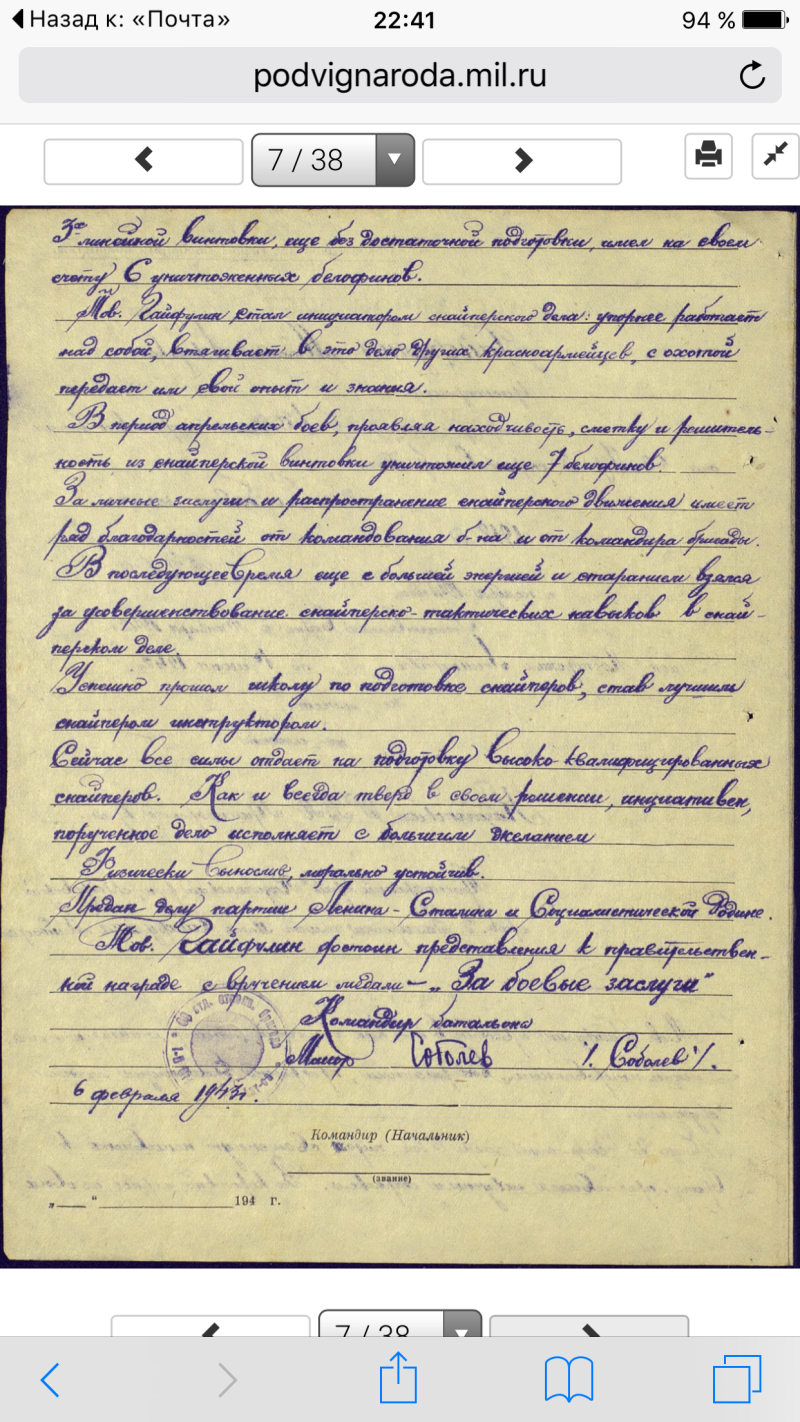 Назад к: «Почта» 22:41 94 %
podvignaroda.mil.ru
7 / 38
3х линейной винтовки, еще без достаточной подготовки, имел на своем
счету 6 уничтоженных белофинов.
Тов. Гайфулин стал инициатором снайперского дела: упорнее работает
над собой, втягивает в это дело других красноармейцев, с охотой
передает им свой опыт и знания.
В период апрельских боев, проявляя находчивость, сметку и решитель-
ность из снайперской винтовки уничтожил еще 7 белофинов.
За личные заслуги и распространение снайперского движения имеет
ряд благодарностей от командования б-на и от командира бригады.
В последующее время еще с большей энергией и старанием взялся
за усовершенствование снайперско-тактических навыков в снай-
перском деле.
Успешно прошел школу по подготовке снайперов, став лучшим
снайпером инструктором.
Сейчас все силы отдает на подготовку высоко-квалифицированных
снайперов. Как и всегда тверд в своем решении, инициативен,
порученное дело исполняет с большим желанием
Физически вынослив, морально устойчив.
Предан делу партии Ленина-Сталина и Социалистической Родине.
Тов. Гайфулин достоин представления к правительствен-
ной награде с вручением медали - „За боевые заслуги"
Командир батальона
Майор Соболев /. Соболев /.
6 февраля 1943г.
Командир (Начальник)
(звание)
„ “ 194 г.
7 / 38